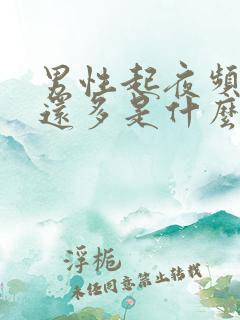 男性起夜頻
還多是什麼
浮梔
未经同意禁止转载